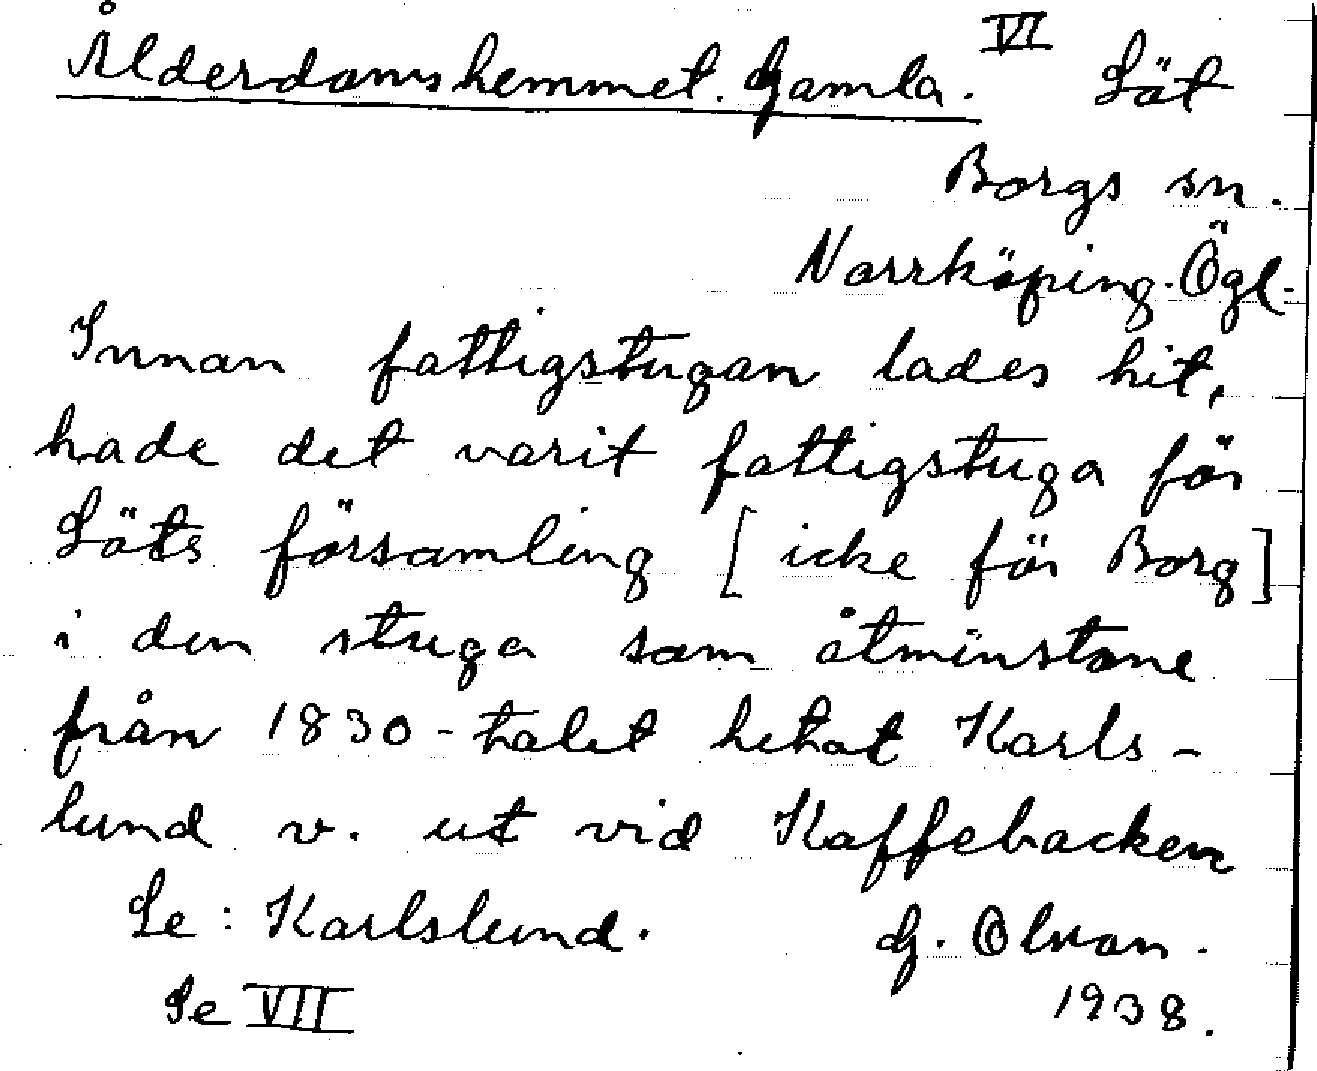 Ålderdomshemmet. Gamla. VI Löt
Borgs sn.
Norrköping. Ögl.
Innan fattigstugan lades hit,
hade det varit fattigstuga för
Löts församling [icke för Borg]
i den stuga som åtminstone
från 1830-talet hetat Karls-
lund v. ut vid Kaffebacken
Se: Karlslund. G. Olson.
Se VII 1938.